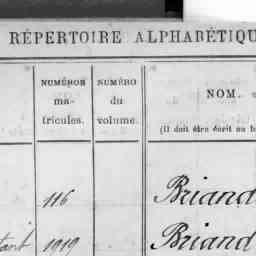 RÉPERTOIRE ALPHABÉTIQU
NUMÉROS
ma-
tricules.
NUMÉRO
du
volume.
NOM.
(Il doit être écrit au b
116 Briand
tant 1919 Briand